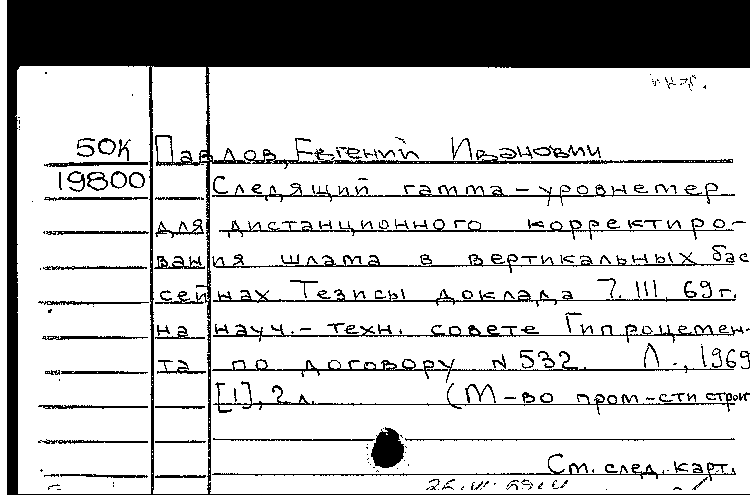 50К Павлов, Евгений Иванович
19800 Следящий гамма-уровнемер
для дистанционного корректиро-
вания шлама в вертикальных бас
сейнах. Тезисы доклада 7.III.69г.
на науч.-техн. совете Гипроцемен-
та по договору №532. Л., 1969
[1], 2 л. (М-во пром-сти строи
См. след. карт.